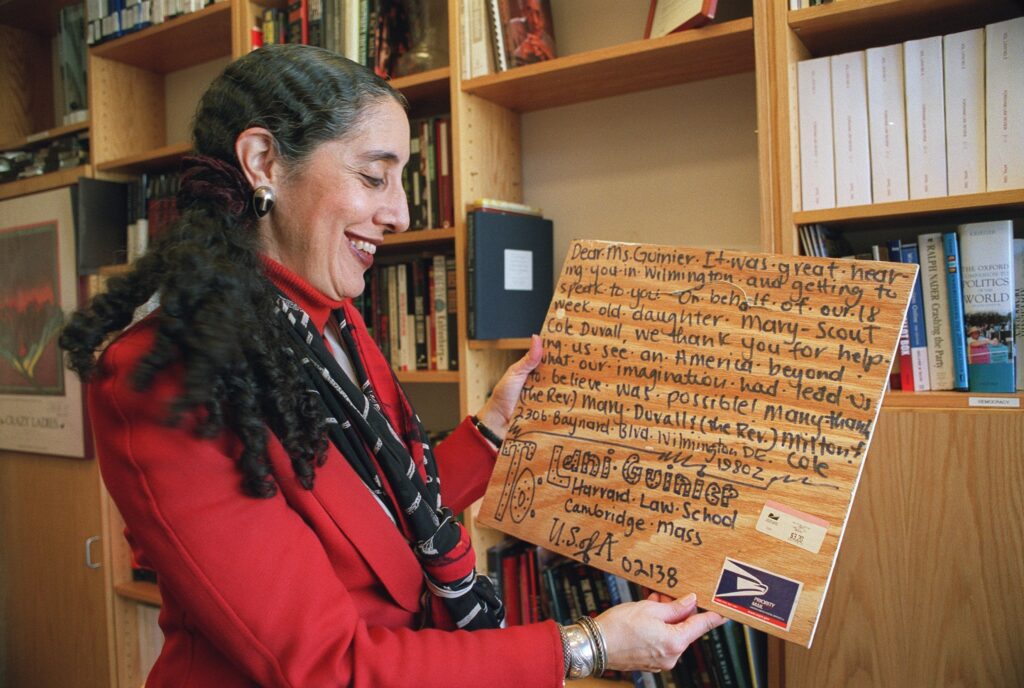 Dear·Ms·Guinier·It·was·great·hear-
ing·you·in·Wilmington·and·getting·to
speak·to·you—On·behalf·of·our·18
week·old·daughter·Mary-Scout
Cole·Duvall, we thank you for help-
ing·us·see·an·America·beyond
what·our·imagination·had·lead·us
to·believe·was·possible! Many·thanks
(the Rev) Mary·Duvall&(the Rev.) Milton
2306·Baynard·Blvd. Wilmington DE. Cole
19802
To. Lani·Guinier
Harvard·Law·School
Cambridge·Mass
U.S.of A 02138
PRIORITY
MAIL
CRAZY LADIES
RALPH NADER Crashing the Party
KRIEGER
THE OXFORD
COMPANION TO
POLITICS
OF THE
WORLD
DEMOCRACY